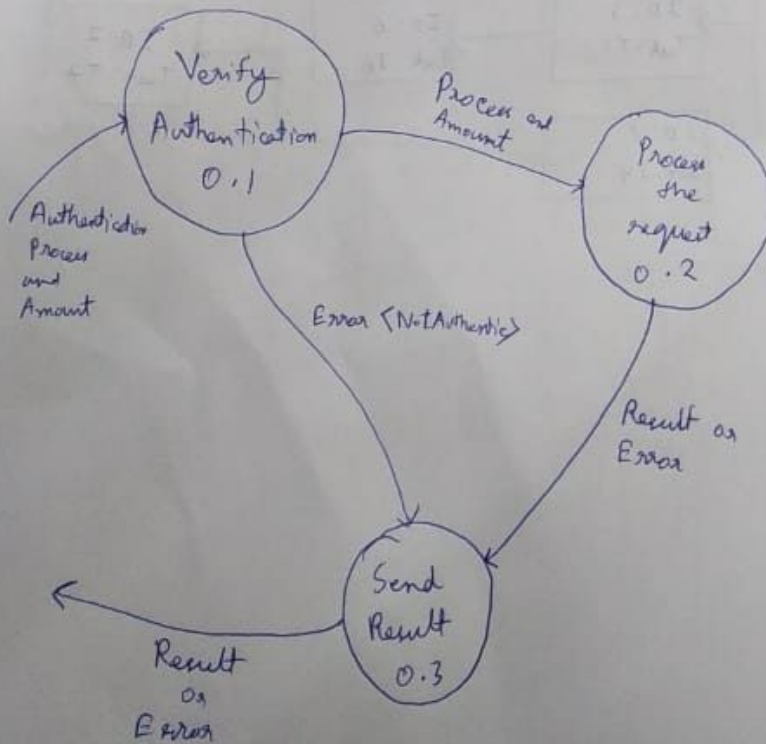 Verify
Authentication
0.1
Process and
Amount
Process
the
request
0.2
Authentication
Process
and
Amount
Error <Not Authentic>
Result or
Error
Send
Result
0.3
Result
or
Error